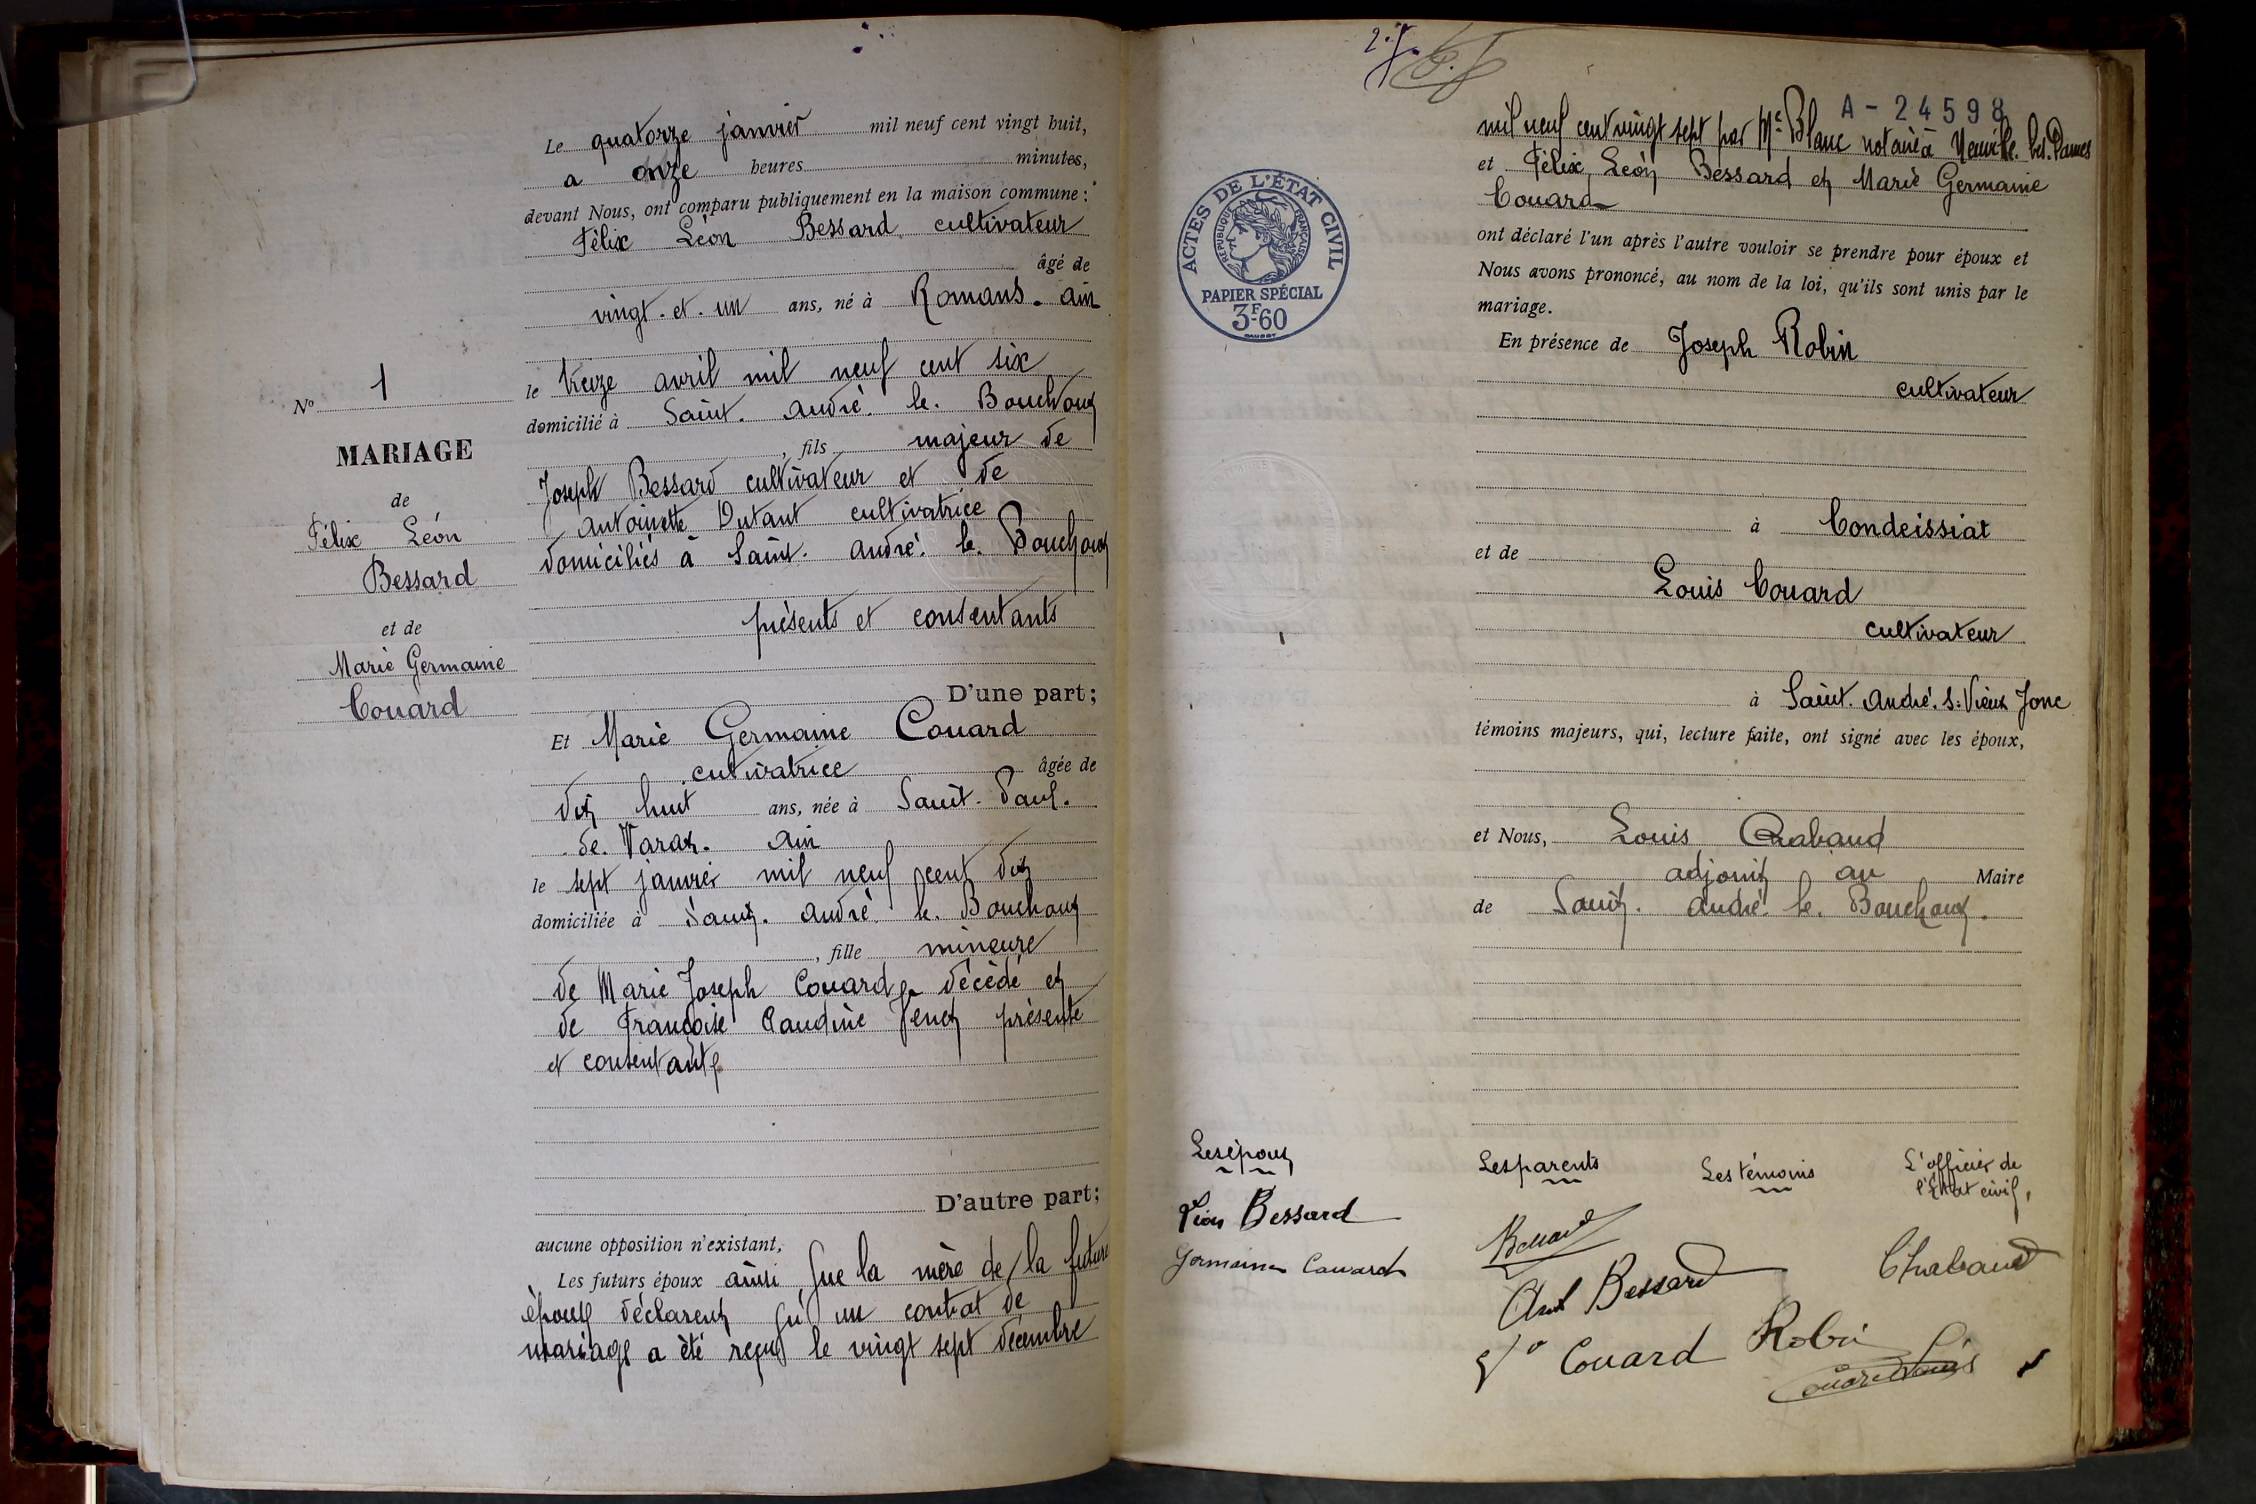 N° 1
MARIAGE
de
Félix Léon
Bessard
et de
Marie Germaine
Couard
Le quatorze janvier mil neuf cent vingt huit,
a onze heures minutes,
devant Nous, ont comparu publiquement en la maison commune :
Félix Léon Bessard cultivateur
âgé de
vingt-et-un ans, né à Romans. Ain
le treize avril mil neuf cent six
domicilié à Saint. André. le. Bouchoux
, fils majeur de
Joseph Bessard cultivateur et de
Antoinette Dutant cultivatrice
domiciliés à Saint. André. le. Bouchoux
présents et consentants
D'une part;
Et Marie Germaine Couard
cultivatrice âgée de
dix huit ans, née à Saint-Paul.
de. Varax. Ain
le sept janvier mil neuf cent dix
domiciliée à Saint. André le. Bouchoux
, fille mineure
de Marie Joseph Couard décédé et
de Françoise Claudine présente
et consentante
D'autre part;
aucune opposition n'existant,
Les futurs époux ainsi que la mère de la future
épouse déclarent qu'un contrat de
mariage a été reçu le vingt sept décembre
A-24598
mil neuf cent vingt sept par Me Blanc notaire à Neuville. les. Dames
et Félix Léon Bessard et Marie Germaine
Couard
ont déclaré l'un après l'autre vouloir se prendre pour époux et
Nous avons prononcé, au nom de la loi, qu'ils sont unis par le
mariage.
En présence de Joseph Robin
cultivateur
à Condeissiat
et de
Louis Couard
cultivateur
à Saint. André. s. Vieux Jonc
témoins majeurs, qui, lecture faite, ont signé avec les époux,
et Nous, Louis Chabaud
adjoint au Maire
de Saint. André. le. Bouchoux.
ACTES DE L'ÉTAT CIVIL
RÉPUBLIQUE FRANÇAISE
PAPIER SPÉCIAL
3F-60
Les époux
Léon Bessard
Germaine Couard
Les parents
Bessard
Ant Bessard
Couard
Les témoins
Robin
Couard Louis
L'officier de
l'Etat civil,
Chabaud